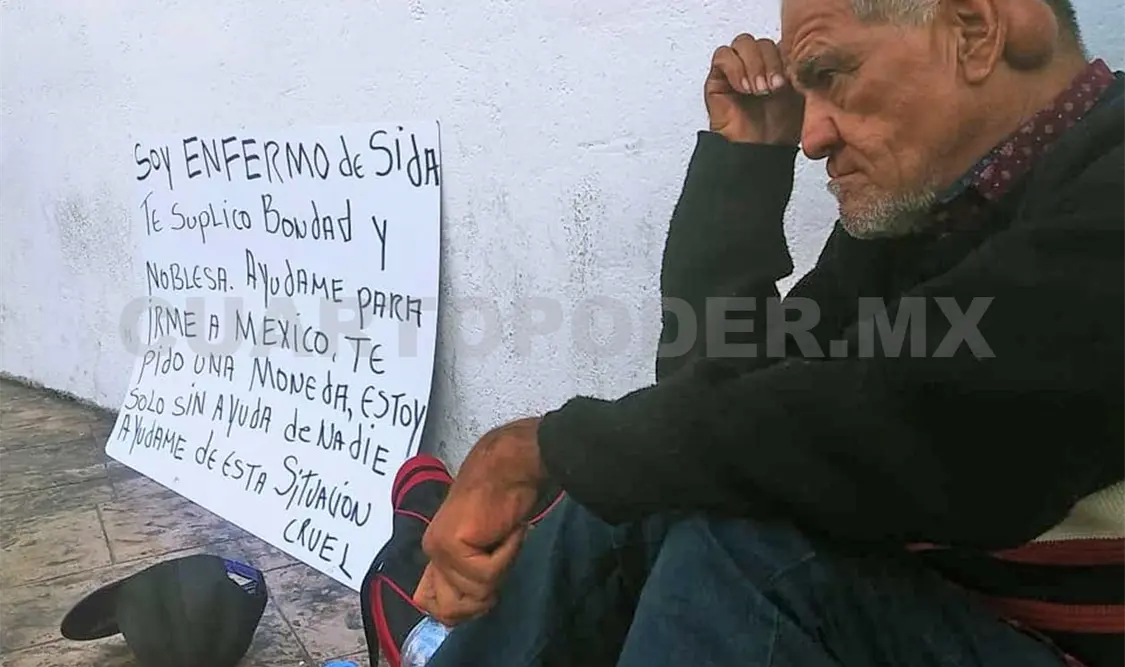 Soy ENFERMO de SidA
Te Suplico Bondad y
NOBLESA. AYUDAME PARA
IRME A MEXICO, TE
PIDO UNA MONEDA, ESTOY
SOLO SIN AYUDA de NADIE
AYUDAME DE ESTA SITUACION
CRUEL
CUARTOPODER.MX